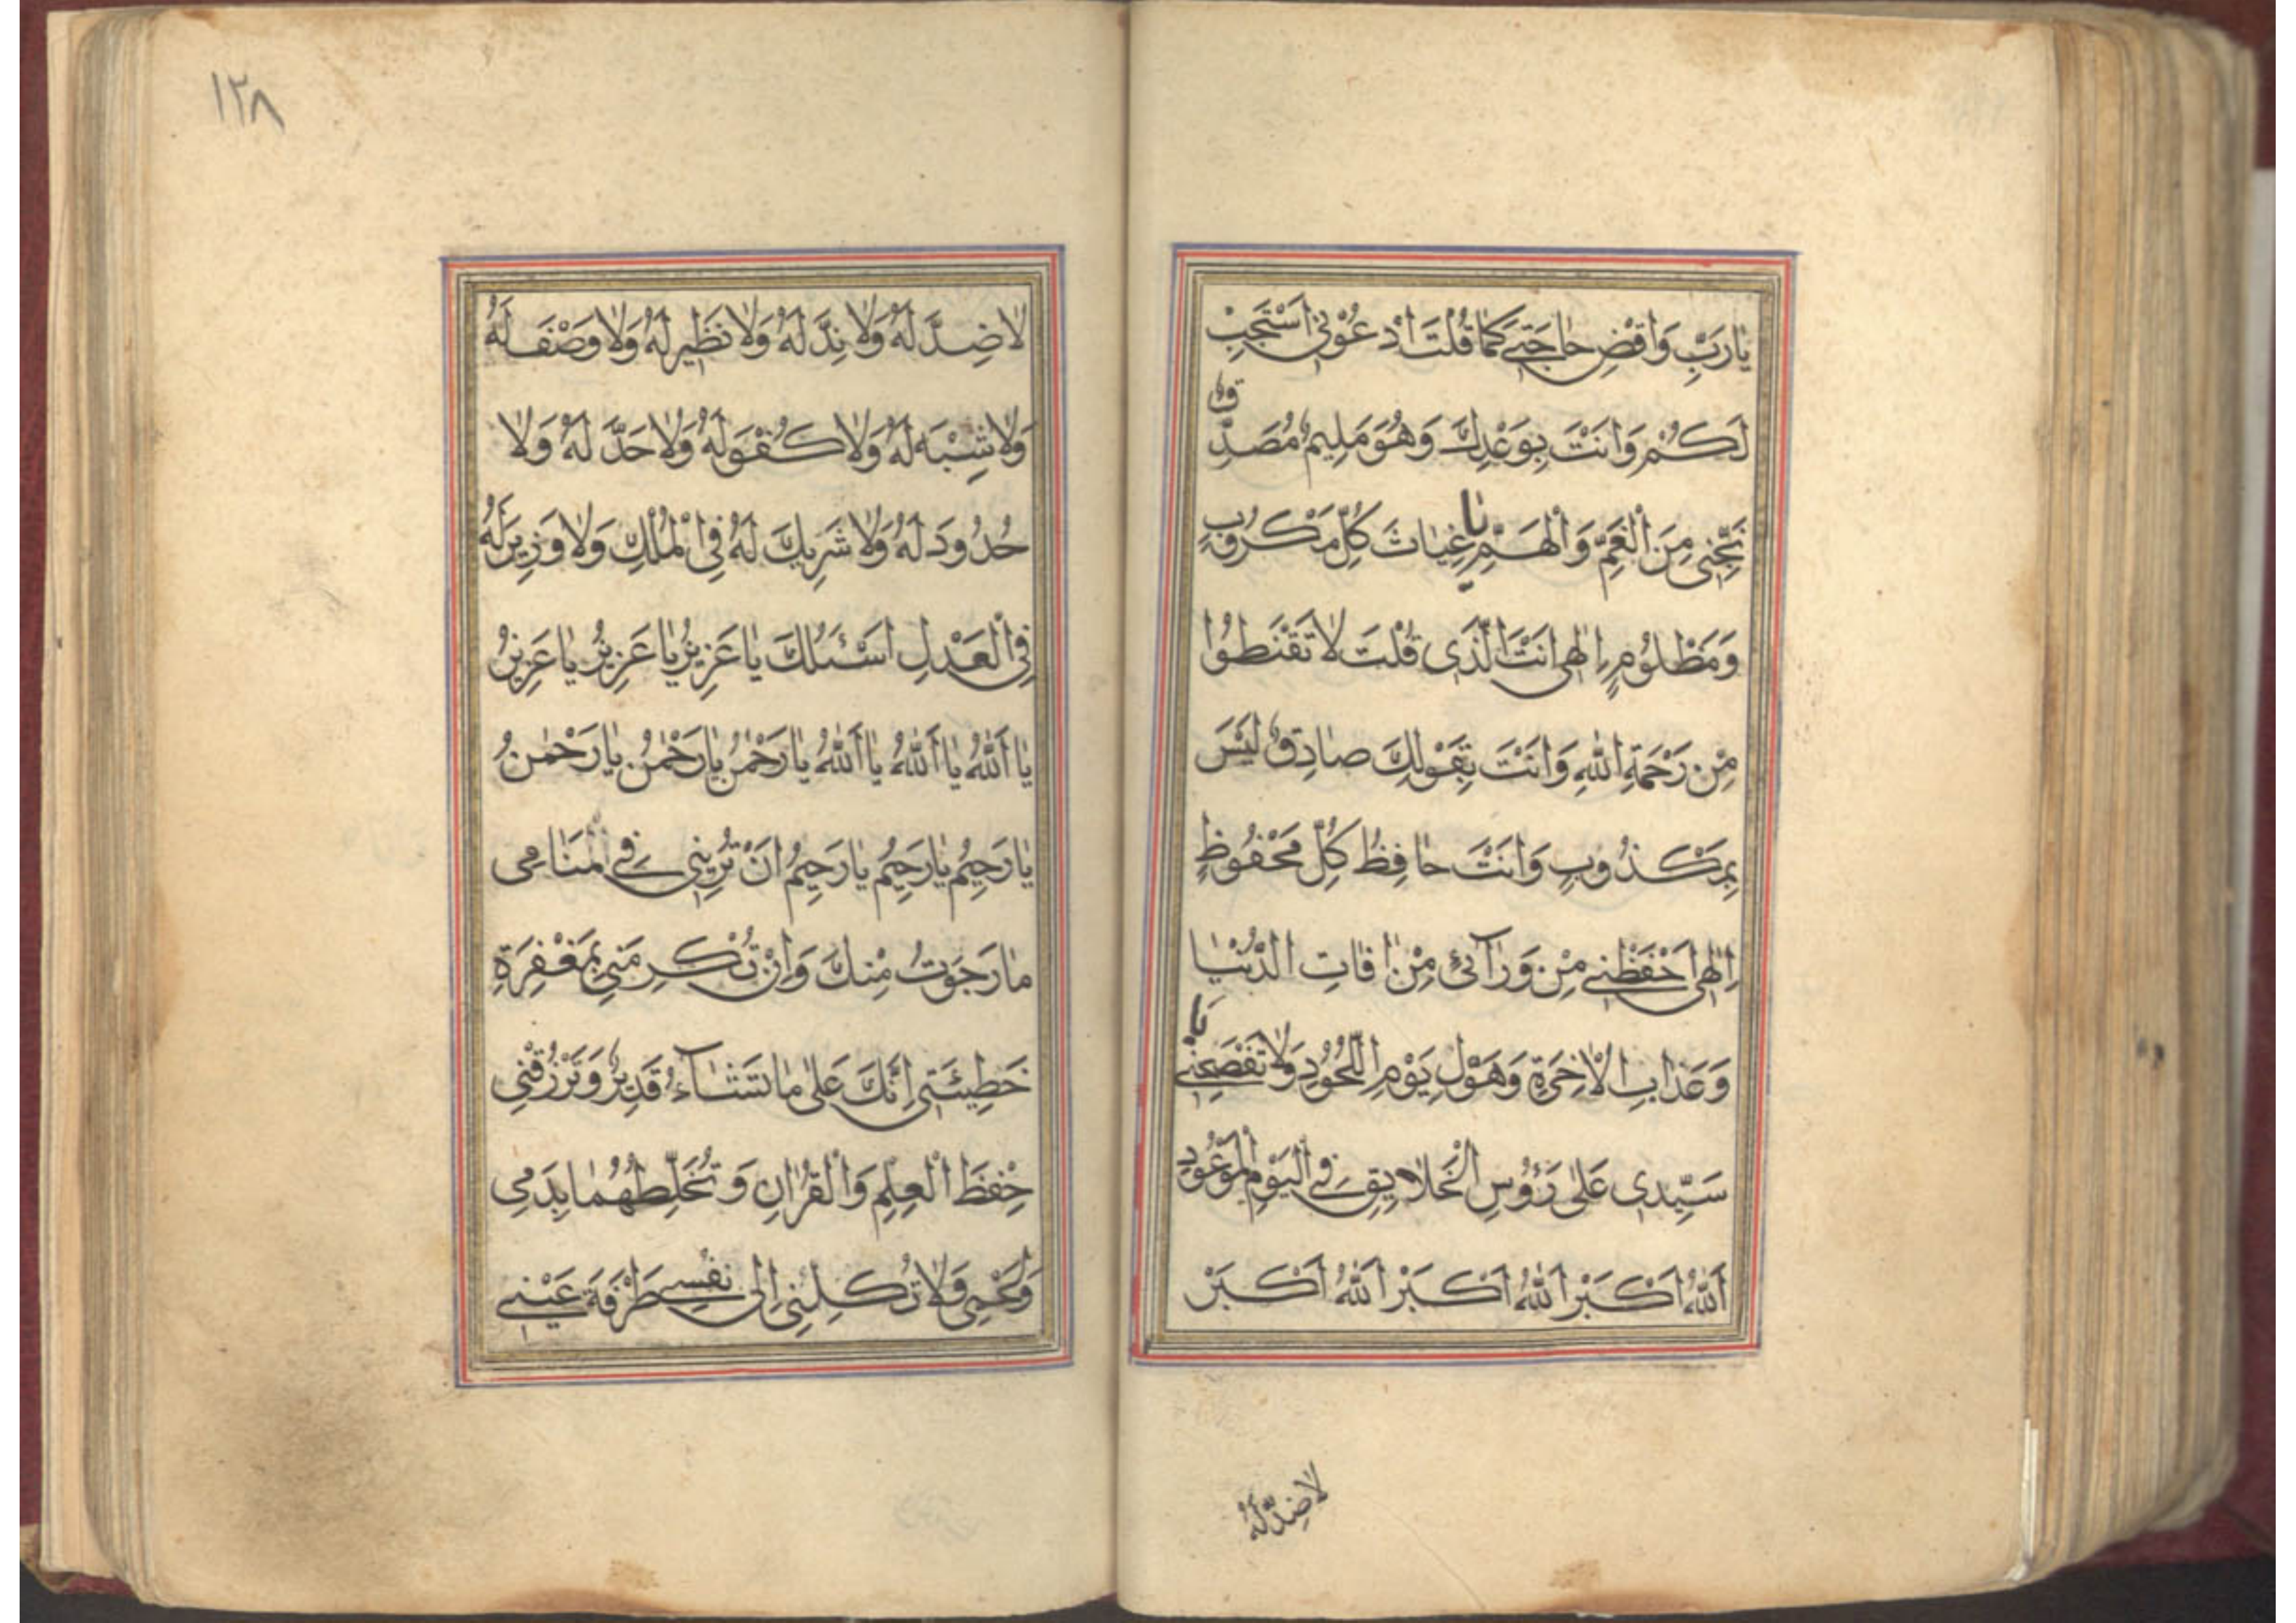 يٰا رَبِّ وَاقْضِ حٰاجَتِي كَمٰا قُلْتَ ادْعُوْنِي اَسْتَجِبْ
لَكُمْ وَاَنْتَ بِوَعْدِكَ وَهُوَ مَلِيمٌ مُصَدِّقٌ
نَجِّنِي مِنَ الْغَمِّ وَالْهَمِّ يٰا غِيٰاثَ كُلِّ مَكْرُوبٍ
وَمَظْلُومٍ اِلٰهِي اَنْتَ الَّذِي قُلْتَ لٰا تَقْنَطُوا
مِنْ رَحْمَةِ اللّٰهِ وَاَنْتَ بِقَوْلِكَ صٰادِقٌ لَيْسَ
بِمَكْذُوبٍ وَاَنْتَ حٰافِظُ كُلِّ مَحْفُوظٍ
اِلٰهِي احْفَظْنِي مِنْ وَرٰآئِي مِنْ اٰفٰاتِ الدُّنْيٰا
وَعَذٰابِ الْاٰخِرَةِ وَهَوْلِ يَوْمِ اللُّحُودِ وَلٰا تَفْضَحْنِي يٰا
سَيِّدِي عَلٰى رَؤُسِ الْخَلٰايِقِ فِي الْيَوْمِ الْمَوْعُودِ
اَللّٰهُ اَكْبَرْ اَللّٰهُ اَكْبَرْ اَللّٰهُ اَكْبَرْ
لٰا ضِدَّ لَهُ
١٢٨
لٰا ضِدَّ لَهُ وَلٰا نِدَّ لَهُ وَلٰا نَظِيرَ لَهُ وَلٰا وَصْفَ لَهُ
وَلٰا شِبْهَ لَهُ وَلٰا كُفْوَ لَهُ وَلٰا حَدَّ لَهُ وَلٰا
حُدُودَ لَهُ وَلٰا شَرِيكَ لَهُ فِي الْمُلْكِ وَلٰا وَزِيرَ لَهُ
فِي الْعَدْلِ اَسْئَلُكَ يٰا عَزِيزُ يٰا عَزِيزُ يٰا عَزِيزُ
يٰا اَللّٰهُ يٰا اَللّٰهُ يٰا اَللّٰهُ يٰا رَحْمٰنُ يٰا رَحْمٰنُ يٰا رَحْمٰنُ
يٰا رَحِيمُ يٰا رَحِيمُ يٰا رَحِيمُ اَنْ تُرِيَنِي فِي مَنٰامِي
مٰا رَجَوْتُ مِنْكَ وَاَنْ تُكْرِمَنِي بِمَغْفِرَةِ
خَطِيئَتِي اِنَّكَ عَلٰى مٰا تَشٰآءُ قَدِيرٌ وَتَرْزُقْنِي
حِفْظَ الْعِلْمِ وَالْقُرْاٰنِ وَتُخَلِّطَهُمٰا بِدَمِي
وَلَحْمِي وَلٰا تُكِلْنِي اِلٰى نَفْسِي طَرْفَةَ عَيْنِي